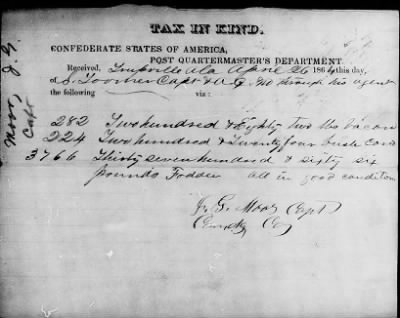 TAX IN KIND.
CONFEDERATE STATES OF AMERICA,
POST QUARTERMASTER'S DEPARTMENT.
Received, Ala April 26 1864 this day,
of S. Toomer Capt & A.Q.M. through his agent
the following viz:
282 Two hundred & Eighty two lbs bacon
224 Two hundred & Twenty four bush Corn
3766 Thirty seven hundred & sixty six
pounds Fodder all in good conditon
J. G. Moor Capt
Moor, J. G.
Capt